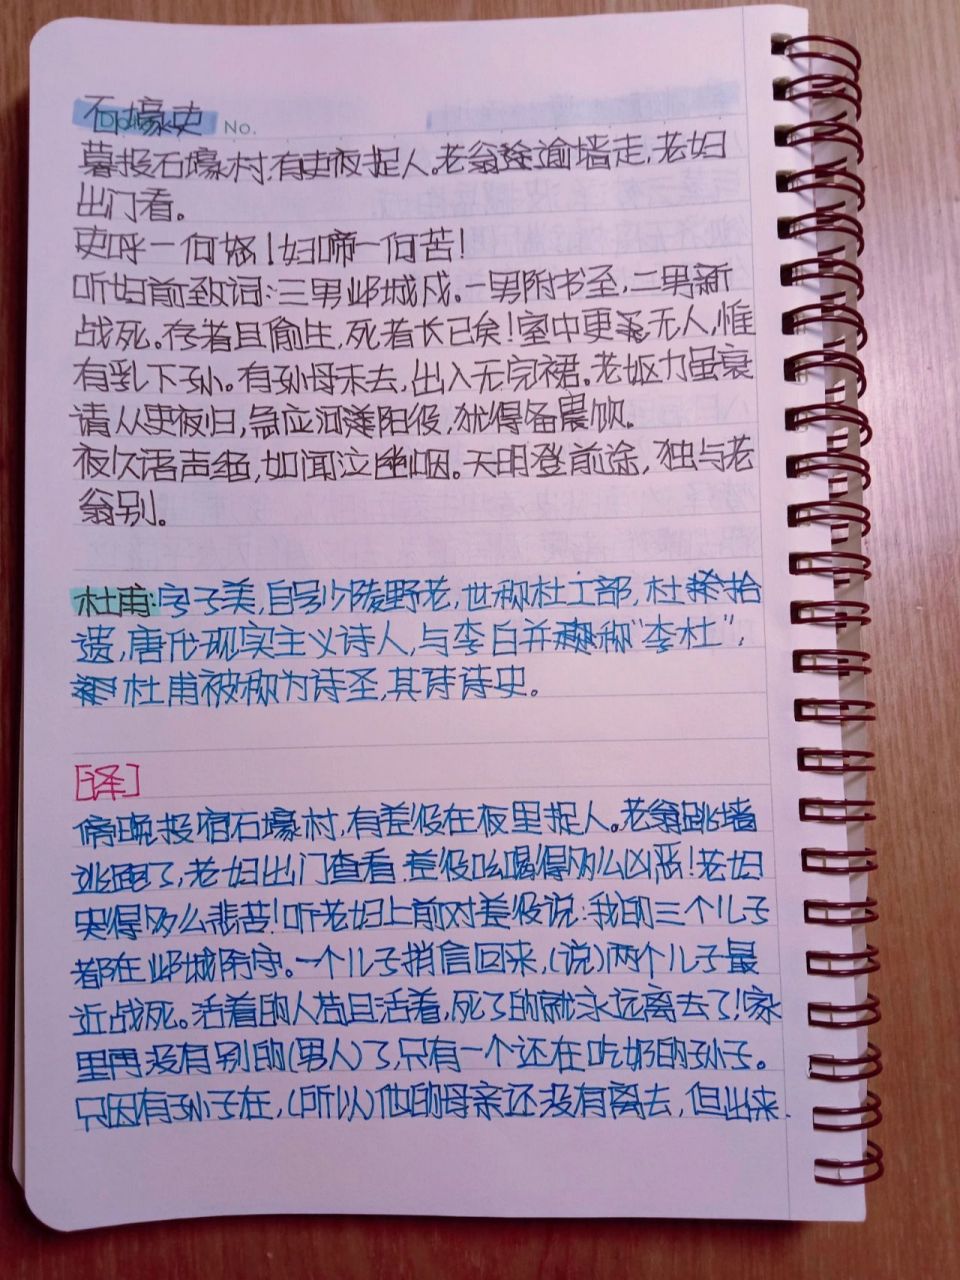 石壕吏 No.
暮投石壕村,有吏夜捉人。老翁逾墙走,老妇
出门看。
吏呼一何怒!妇啼一何苦!
听妇前致词:三男邺城戍。一男附书至,二男新
战死。存者且偷生,死者长已矣!室中更无人,惟
有乳下孙。有孙母未去,出入无完裙。老妪力虽衰
请从吏夜归,急应河阳役,犹得备晨炊。
夜久语声绝,如闻泣幽咽。天明登前途,独与老
翁别。
杜甫:字子美,自号少陵野老,世称杜工部,杜拾
遗,唐代现实主义诗人,与李白并称“李杜”,
杜甫被称为诗圣,其诗诗史。
[译]
傍晚投宿石壕村,有差役在夜里捉人。老翁跳墙
逃跑了,老妇出门查看.差役吆喝得多么凶恶!老妇
哭得多么悲苦!听老妇上前对差役说:我的三个儿子
都在邺城防守。一个儿子捎信回来,(说)两个儿子最
近战死。活着的人苟且活着,死了的就永远离去了!家
里再没有别的(男人)了,只有一个还在吃奶的孙子。
只因有孙子在,(所以)他的母亲还没有离去,但出来